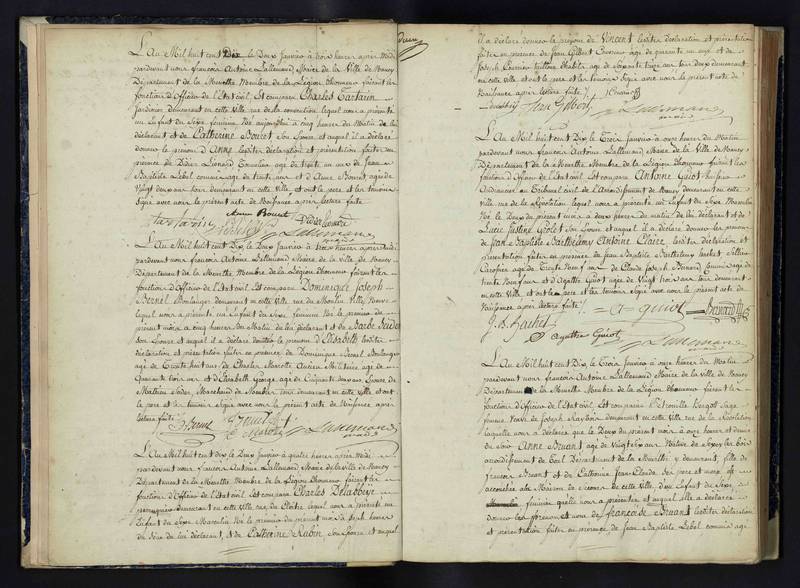 L'An Mil huit cent Dix le Deux Janvier à trois heures après Midi
pardevant nous françois Antoine Lallemand Maire de la Ville de Nancy
Département de la Meurthe Membre de la Légion d'honneur faisant les
fonctions d'Officier de l'Etat civil. Est comparu Charles Tartarin
Jardinier demeurant en cette Ville rue de la lequel nous a présenté
un Enfant du Sexe féminin Né aujourd'hui à cinq heures du Matin de lui
déclarant et de Catherine Son Epouse et auquel il a déclaré
donner le prénom d'Anne lesdites déclaration et présentation faites en
présence de Didier Léonard agé de trente un ans de Jean
Baptiste Lebel commis agé de trente ans et d'Anne Bouret agée de
Vingt deux ans tous demeurant en cette Ville, et ont le pere et les temoins
Signé avec nous le présent acte de Naissance après lecture faite
Anne Bouret
tartarin Didier Léonard
Lallemand
L'An Mil huit cent Dix le Deux Janvier à trois heures après midi
pardevant nous françois Antoine Lallemand Maire de la Ville de Nancy
Département de la Meurthe Membre de la Légion d'honneur faisant les
fonctions d'Officier de l'Etat civil. Est comparu Dominique Joseph
Boulanger demeurant en cette Ville rue du Moulin Ville Neuve
lequel nous a présenté un Enfant du Sexe féminin Né le premier du
présent mois à cinq heures du Matin de lui déclarant et de Barbe
Son Epouse et auquel il a déclaré donner le prénom d'Elisabeth lesdites
déclaration et présentation faites en présence de Dominique Boulanger
agé de Trente huit ans, de Charles Marotte Ancien Militaire agé de
Quarante trois ans et d'Elisabeth George, agée de Cinquante deux ans, Epouse de
Mathieu Marchand de tous demeurant en cette Ville et ont
le pere et les temoins Signé avec nous le présent acte de Naissance après
lecture faite
Lallemand
L'An Mil huit cent Dix le Deux Janvier à quatre heures après Midi
pardevant nous françois Antoine Lallemand Maire de la Ville de Nancy
Département de la Meurthe Membre de la Légion d'honneur faisant les
fonctions d'Officier de l'Etat civil. Est comparu Charles Delabbeye
perruquier demeurant en cette Ville rue du Cloitre lequel nous a présenté un
Enfant du Sexe Masculin Né le premier du présent mois à Sept heures
du Soir de lui déclarant, et de Catherine Rubin, Son Epouse et auquel
il a déclaré donner le prénom de Vincent lesdites déclaration et présentation
faites en présence de Jean Gilbert agé de quarante un ans et de
Joseph agé de Soixante trois ans tous deux demeurant
en cette Ville et ont le pere et les temoins Signé avec nous le présent acte de
Naissance après lecture faite
Jean Gilbert Lallemand
L'An Mil huit cent Dix, le Trois Janvier à onze heures du Matin
pardevant nous françois Antoine Lallemand Maire de la Ville de Nancy
Département de la Meurthe Membre de la Légion d'honneur faisant les
fonctions d'Officier de l'Etat civil. Est comparu Antoine Guiot huissier
Audiencier au Tribunal civil de l'arrondissement de Nancy demeurant en cette
Ville rue de la Révolution lequel nous a présenté un Enfant du Sexe Masculin
Né le Deux du présent mois à deux heures du matin de lui déclarant et de
Lucie Justine Son Epouse et auquel il a déclaré donner les prénoms
de Jean Baptiste Barthélemy Antoine Claire lesdites déclaration et
présentation faites en présence de Jean Baptiste Barthélemy Rachet Sellier
Carossier agé de Trente Neuf ans, de Claude Joseph Bernard Commis agé de
trente Neuf ans et d'Agathe Guiot agée de Vingt trois ans tous demeurant
en cette Ville et ont le pere et les temoins Signé avec nous le présent acte de
Naissance après lecture faite
A guiot Bernard
J. B. Rachet
agathe Guiot Lallemand
L'An Mil huit cent Dix, le Trois Janvier à onze heures du Matin
pardevant nous françois Antoine Lallemand Maire de la Ville de Nancy
Département de la Meurthe Membre de la Légion d'honneur faisant les
fonctions d'Officier de l'Etat civil. Est comparu Petronille Bergott Sage
femme, Veuve de Joseph demeurant en cette Ville rue de la Révolution
laquelle nous a déclaré que le Deux du présent mois à onze heures et demie
du Soir Anne Bruant agée de Vingt Six ans Native de
arrondissement de Toul Département de la Meurthe y demeurant, fille de
françois Bruant et de Catherine Jean Claude, Ses pere et mere est
accouchée en la Maison de Secours de cette Ville, d'un Enfant du Sexe,
féminin qu'elle nous a présenté et auquel elle a déclaré
donner les prénom et nom de françoise Bruant lesdites déclaration
et présentation faites en présence, de Jean Baptiste Lebel commis agé